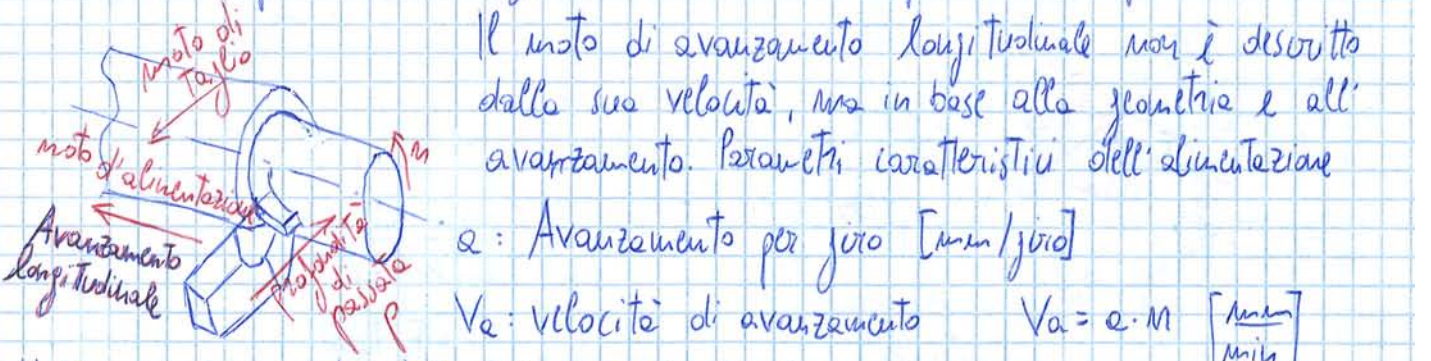 moto di
taglio
moto d'alimentazione
Avanzamento
longitudinale
profondità
di
passata
p
n
Il moto di avanzamento longitudinale non è descritto
dalla sua velocità, ma in base alla geometria e all'
avanzamento. Parametri caratteristici dell'alimentazione
a : Avanzamento per giro [mm/giro]
Va : velocità di avanzamento Va = a · n [mm/min]